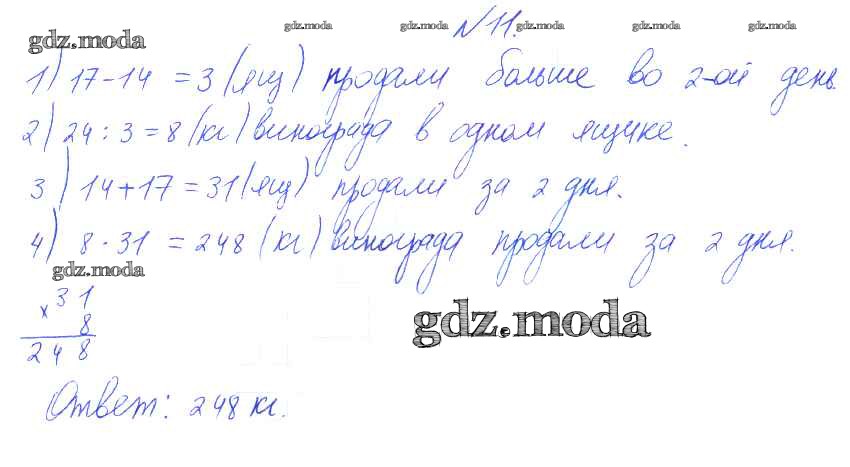 № 11.
gdz.moda gdz.moda gdz.moda gdz.moda gdz.moda
1) 17-14 = 3 (ящ) продали больше во 2-ой день.
2) 24 : 3 = 8 (кг) винограда в одном ящике.
3) 14+17 = 31 (ящ) продали за 2 дня.
4) 8 · 31 = 248 (кг) винограда продали за 2 дня.
gdz.moda
× 31
8
248
gdz.moda
Ответ: 248 кг.